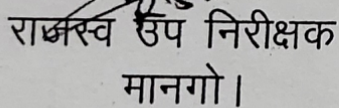 राजस्व उप निरीक्षक
मानगो।